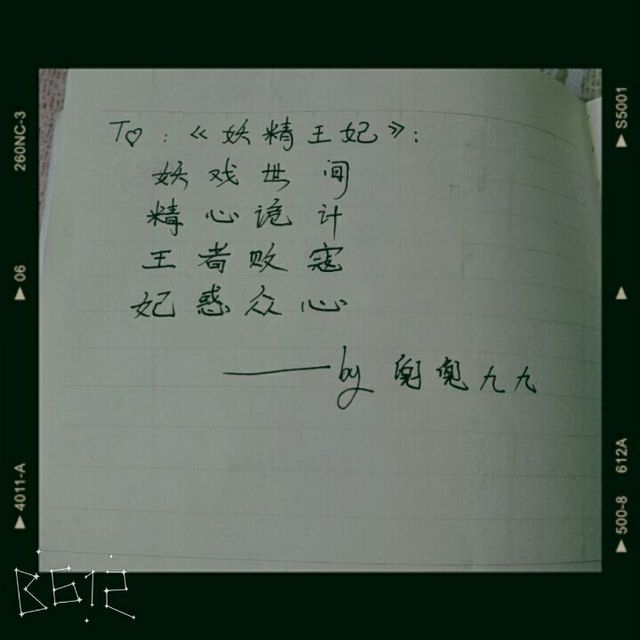 To♡:《妖精王妃》:
妖戏世间
精心诡计
王者败寇
妃惑众心
——by 九九
260NC-3
06
4011-A
S5001
612A
500-8
B612